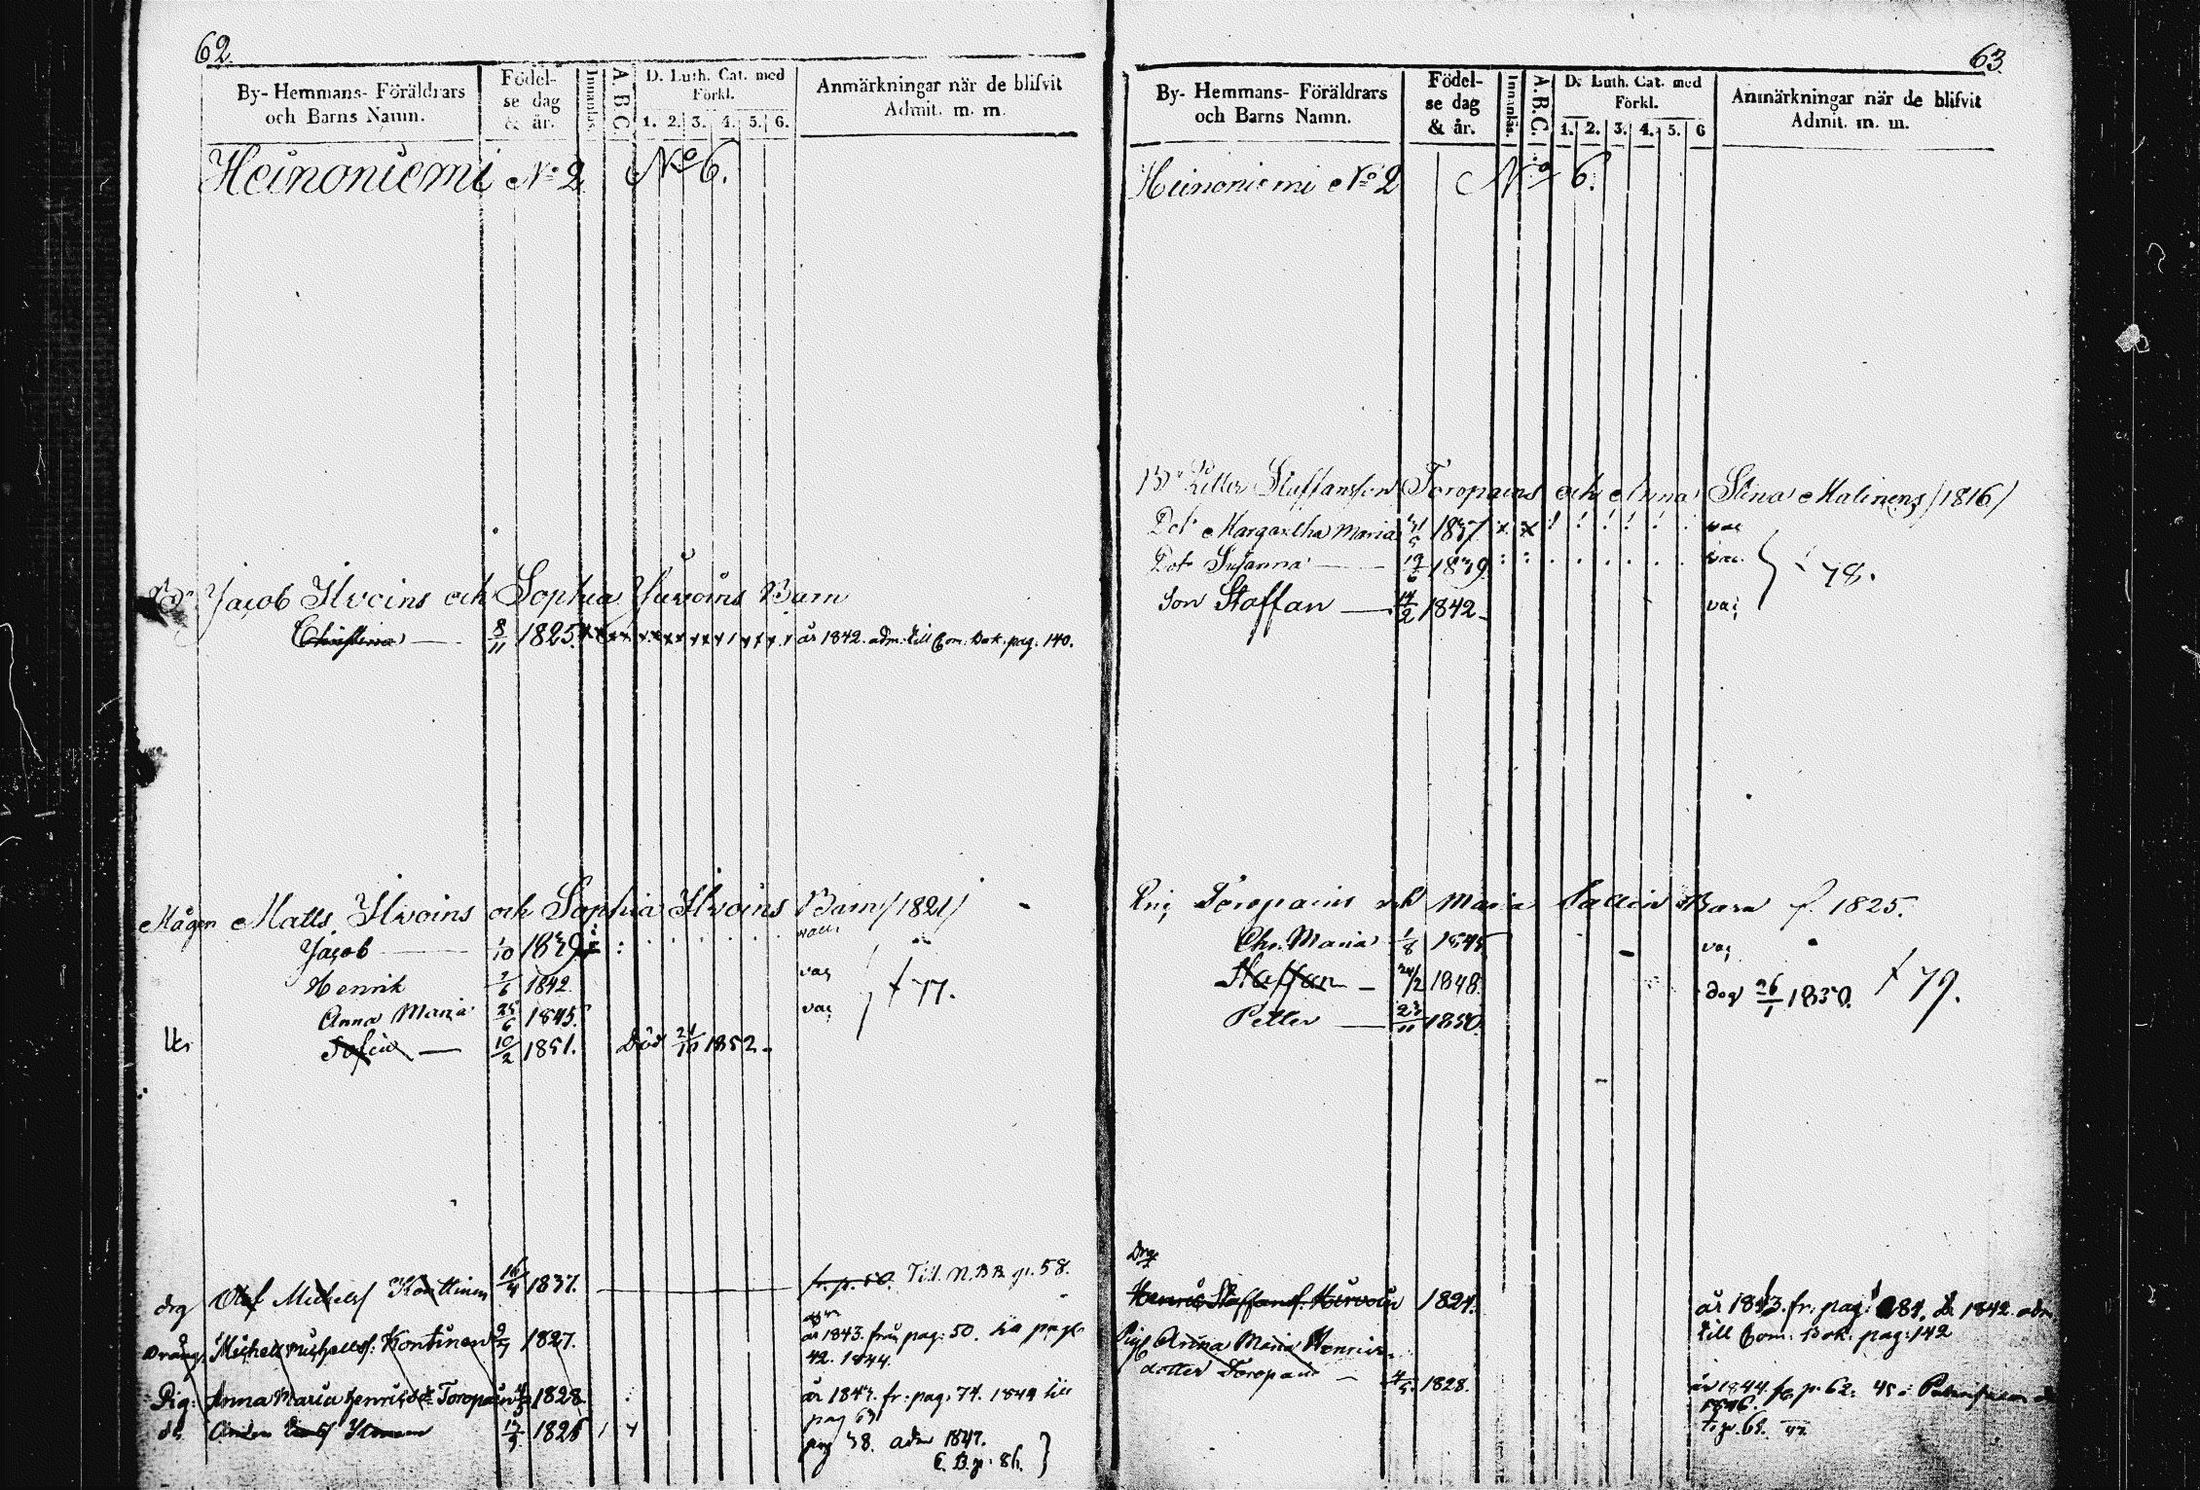 62.
By- Hemmans- Föräldrars och Barns Namn.
Födelse dag & år.
Innanläs.
A. B. C.
D. Luth. Cat. med Förkl.
1. 2. 3. 4. 5. 6.
Anmärkningar när de blifvit Admit. m. m.
Heinoniemi No 2 No 6.
Jacob Ilvoins och Sophia Barn
Christina 8/11 1825 år 1842. adm. till Com. Bok. pag. 140.
Mågen Matts Ilvoins och Sophia Ilvoins Barn /1821/
Jacob 1/10 1839 vac.
Henrik 7/6 1842 vac
Anna Maria 25/6 1845. vac † 77.
Sofia 10/2 1851. Död 21/10 1852.
drg Olof Michelsf Konttinen 16/4 1837. fr. p. 50. Till N.B.B. p. 58.
Dräng. Michell Michellsf. Kontinen 9/7 1827. år 1843. från pag. 50. till pag.
42. 1844.
Pig. Anna Maria Henricsd. Toropain 4/5 1828. år 1843. fr. pag. 74. 1844 till
pag 63
1826 pag 38. adm 1847.
C. B. p. 86.
63.
By- Hemmans- Föräldrars och Barns Namn.
Födelse dag & år.
Innanläs.
A. B. C.
D. Luth. Cat. med Förkl.
1. 2. 3. 4. 5. 6
Anmärkningar när de blifvit Admit. m. m.
Heinoniemi No 2 No 6.
Petter Staffansson Toropains och Anna Stina Malinens /1816/
Dot. Margaretha Maria 1837 vac
Dot. Susanna 1839. vac.
Son Staffan 14/2 1842 vac † 78.
Toropains och Maria Barn f. 1825.
Chr. Maria 1/8 1845 vac
Staffan 24/2 1848. dog 26/1 1850. † 79.
Petter 23/11 1850.
Drg
Henric Staffansf. Hirvoin 1824. år 1843. fr. pag. 184. 1842. adm
till Com. Bok. pag. 142
Pig. Anna Maria Henrics-
dotter Toropain 4/5 1828. år 1844. fr p. 62.
1846.